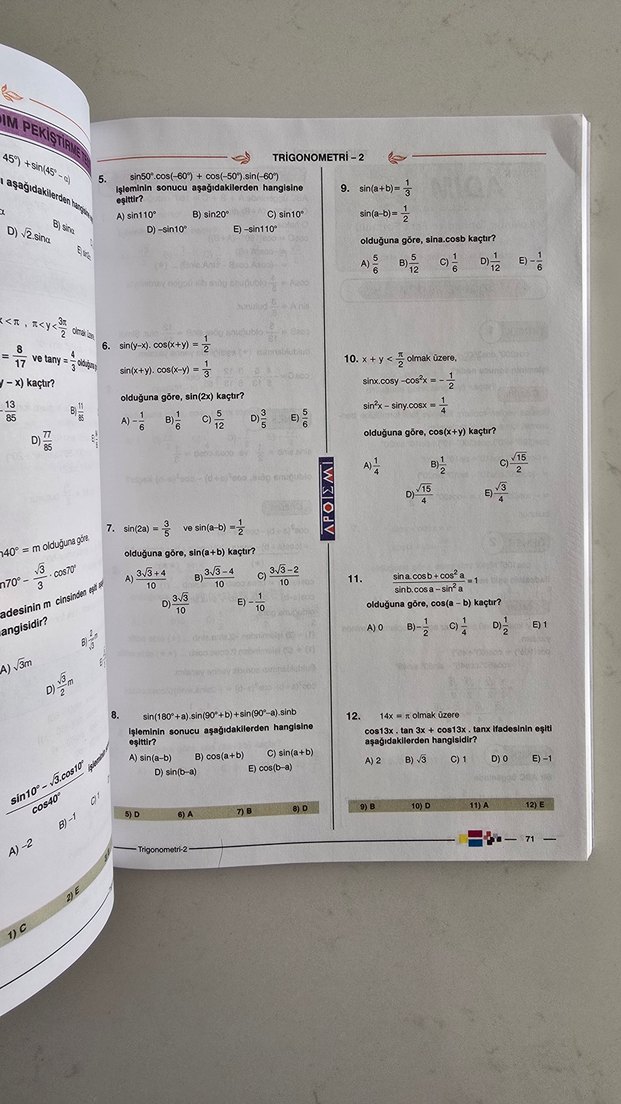 DIM PEKİŞTİRME TE
45°) +sin(45° – α)
ı aşağıdakilerden
B) sinα
D) √2.sinα
x<π , π<y<3π/2 olmak üzere,
= 8/17 ve tany = 4/3 olduğuna
y – x) kaçtır?
13/85
B) 11/85
D) 77/85
40° = m olduğuna göre,
n70° – √3/3 · cos70°
adesinin m cinsinden eşiti
angisidir?
A) √3m
B) 2/√3 m
D) √3/2 m
sin10° – √3.cos10°
cos40°
A) –2
B) –1
C) 1
1) C
2) E
TRİGONOMETRİ – 2
5. sin50°.cos(–60°) + cos(–50°).sin(–60°)
işleminin sonucu aşağıdakilerden hangisine
eşittir?
A) sin110° B) sin20° C) sin10°
D) –sin10° E) –sin110°
6. sin(y–x). cos(x+y) = 1/2
sin(x+y). cos(x–y) = 1/3
olduğuna göre, sin(2x) kaçtır?
A) –1/6 B) 1/6 C) 5/12 D) 3/5 E) 5/6
7. sin(2a) = 3/5 ve sin(a–b) = 1/2
olduğuna göre, sin(a+b) kaçtır?
A) 3√3+4/10 B) 3√3–4/10 C) 3√3–2/10
D) 3√3/10 E) –1/10
8. sin(180°+a).sin(90°+b)+sin(90°–a).sinb
işleminin sonucu aşağıdakilerden hangisine
eşittir?
A) sin(a–b) B) cos(a+b) C) sin(a+b)
D) sin(b–a) E) cos(b–a)
5) D 6) A 7) B 8) D
Trigonometri-2
APOIEMI
9. sin(a+b)= 1/3
sin(a–b)= 1/2
olduğuna göre, sina.cosb kaçtır?
A) 5/6 B) 5/12 C) 1/6 D) 1/12 E) –1/6
10. x + y < π/2 olmak üzere,
sinx.cosy –cos²x = –1/2
sin²x – siny.cosx = 1/4
olduğuna göre, cos(x+y) kaçtır?
A) 1/4 B) 1/2 C) √15/2
D) √15/4 E) √3/4
11. sina.cosb+cos²a / sinb.cosa–sin²a =1
olduğuna göre, cos(a – b) kaçtır?
A) 0 B) –1/2 C) 1/4 D) 1/2 E) 1
12. 14x = π olmak üzere
cos13x . tan 3x + cos13x . tanx ifadesinin eşiti
aşağıdakilerden hangisidir?
A) 2 B) √3 C) 1 D) 0 E) –1
9) B 10) D 11) A 12) E
71